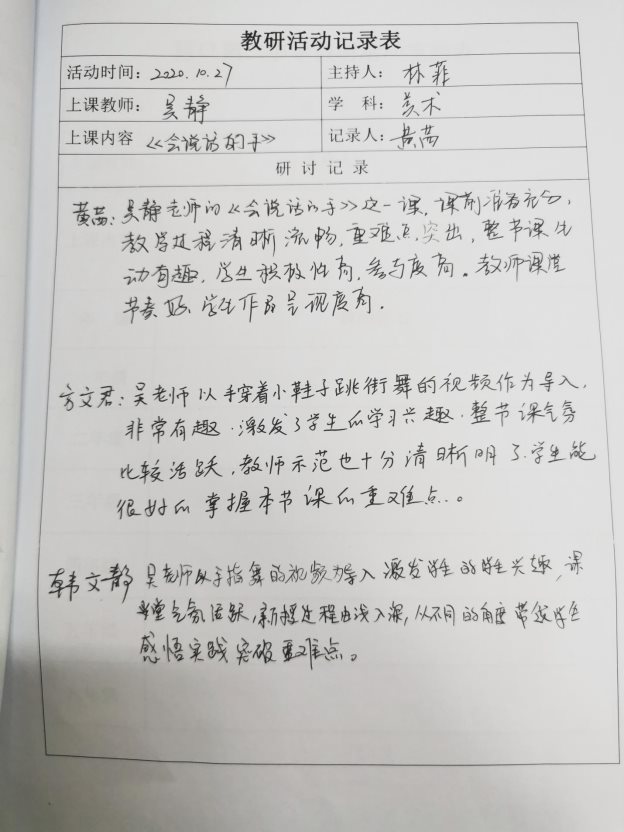 教研活动记录表
活动时间：2020.10.27 主持人：林菲
上课教师：吴静 学 科：美术
上课内容《会说话的手》 记录人：黄茜
研讨记录
黄茜：吴静老师的《会说话的手》这一课，课前准备充分，
教学过程清晰流畅，重难点突出，整节课生
动有趣，学生积极性高，参与度高。教师课堂
节奏好，学生作品呈现度高．
方文君：吴老师以手穿着小鞋子跳街舞的视频作为导入．
非常有趣．激发了学生的学习兴趣．整节课气氛
比较活跃，教师示范也十分清晰明了．学生能
很好的掌握本节课的重难点．。
韩文静 吴老师以手指舞的视频为导入激发学生的学生兴趣，课
堂气氛活跃，新授过程由浅入深，从不同的角度带领学生
感悟实践突破重难点。